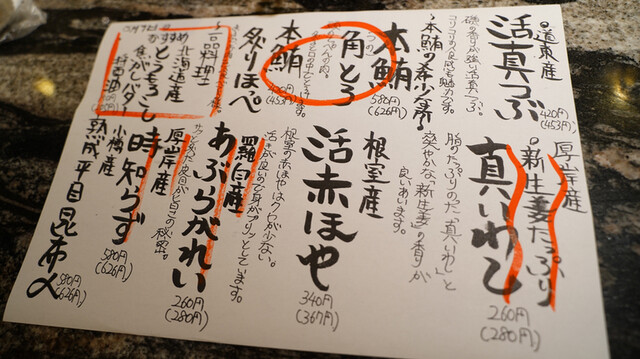 道東産
活真つぶ
磯の香りが強い活真つぶ。
コリコリの食感も魅力です。
420円
(453円)
本鮪の希少な所
本鮪
角とろ
580円
(626円)
本鮪
炙りほぺ
(453円)
一品料理
おすすめ
北海道産
とうもろこし
焦がしバター
醤油
厚岸産
新生姜たっぷり
真いわし
脂のたっぷりのた「真いわし」と
爽やかな「新生姜」の香りが
良いあいます。
260円
(280円)
根室産
活赤ほや
根室の赤ほやはクセが少ない。
340円
(367円)
羅臼産
あぶらがれい
活きが良いので身がプリッとしています。
260円
(280円)
厚岸産
時知らず
580円
(626円)
小樽産
熟成平目昆布〆
580円
(626円)